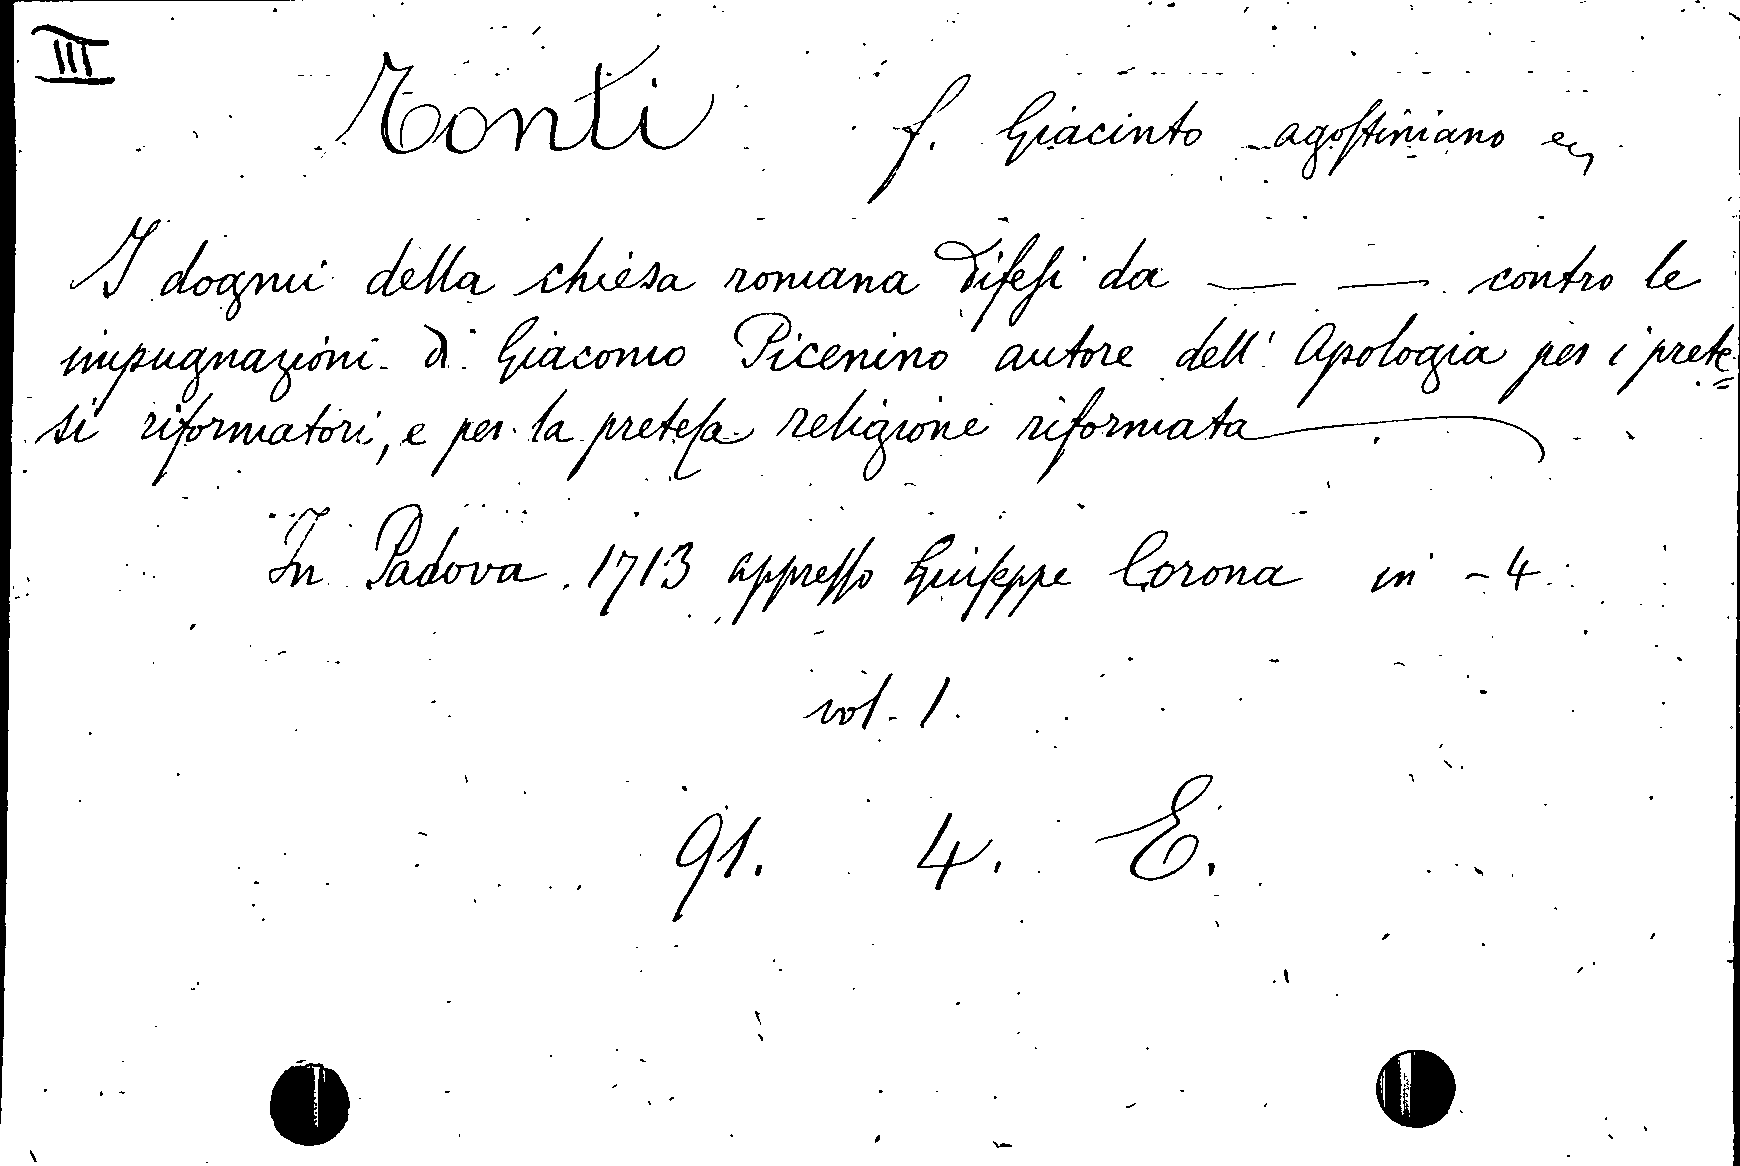 III
Tonti f. Giacinto agostiniano
I dogmi della chiesa romana difesi da — — contro le
impugnazioni di Giacomo Picenino autore dell' Apologia per i prete=
si riformatori, e per la pretesa religione riformata
In Padova 1713 appresso Giuseppe Corona in - 4
vol. 1.
91. 4. E.